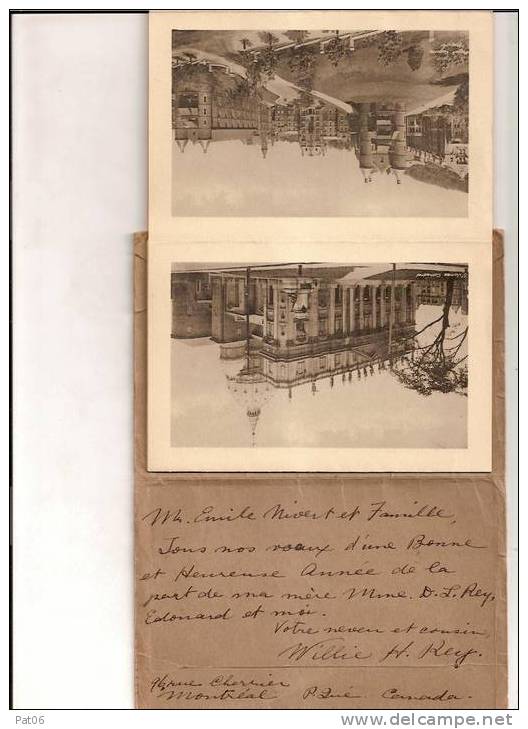 Mr. Emile Nivert et Famille,
Tous nos voeux d'une Bonne
et Heureuse Année de la
part de ma mère Mme. D. L. Rey,
Edouard et moi.
Votre neveu et cousin,
Willie H. Rey.
rue Cherrier
Montréal P. Qué. Canada.
St James Cathedral
Pat06